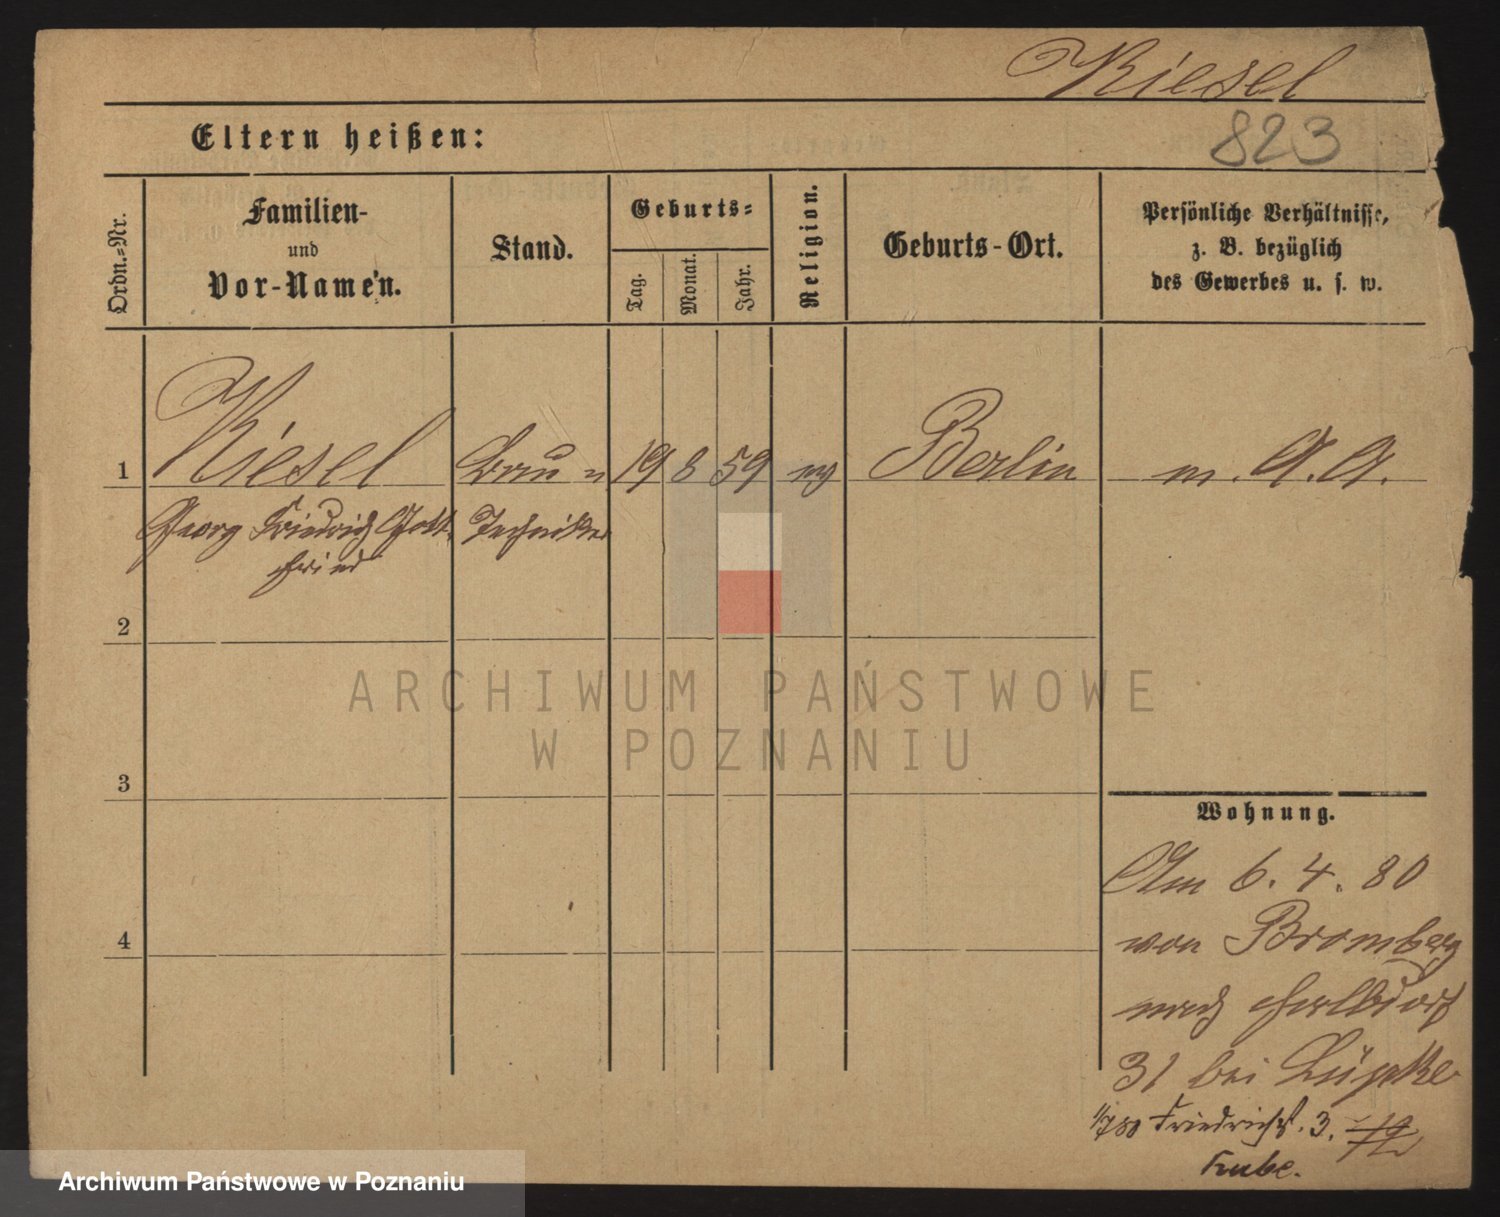 Kiesel
823
Eltern heißen:
Ordn.-Nr.
Familien-
und
Vor-Namen.
Stand.
Geburts-
Tag.
Monat.
Jahr.
Religion.
Geburts-Ort.
Persönliche Verhältnisse,
z. B. bezüglich
des Gewerbes u. s. w.
1 Kiesel Bau 19 8 59 ev Berlin m. A. A.
Georg Friedrich Gott- Techniker
fried
2
3
4
Wohnung.
Am 6. 4. 80
von Bromberg
nach Halldorf
31 bei Lüpke
1/7 80 Friedrichst. 3.
Kube.
ARCHIWUM PAŃSTWOWE
W POZNANIU
Archiwum Państwowe w Poznaniu